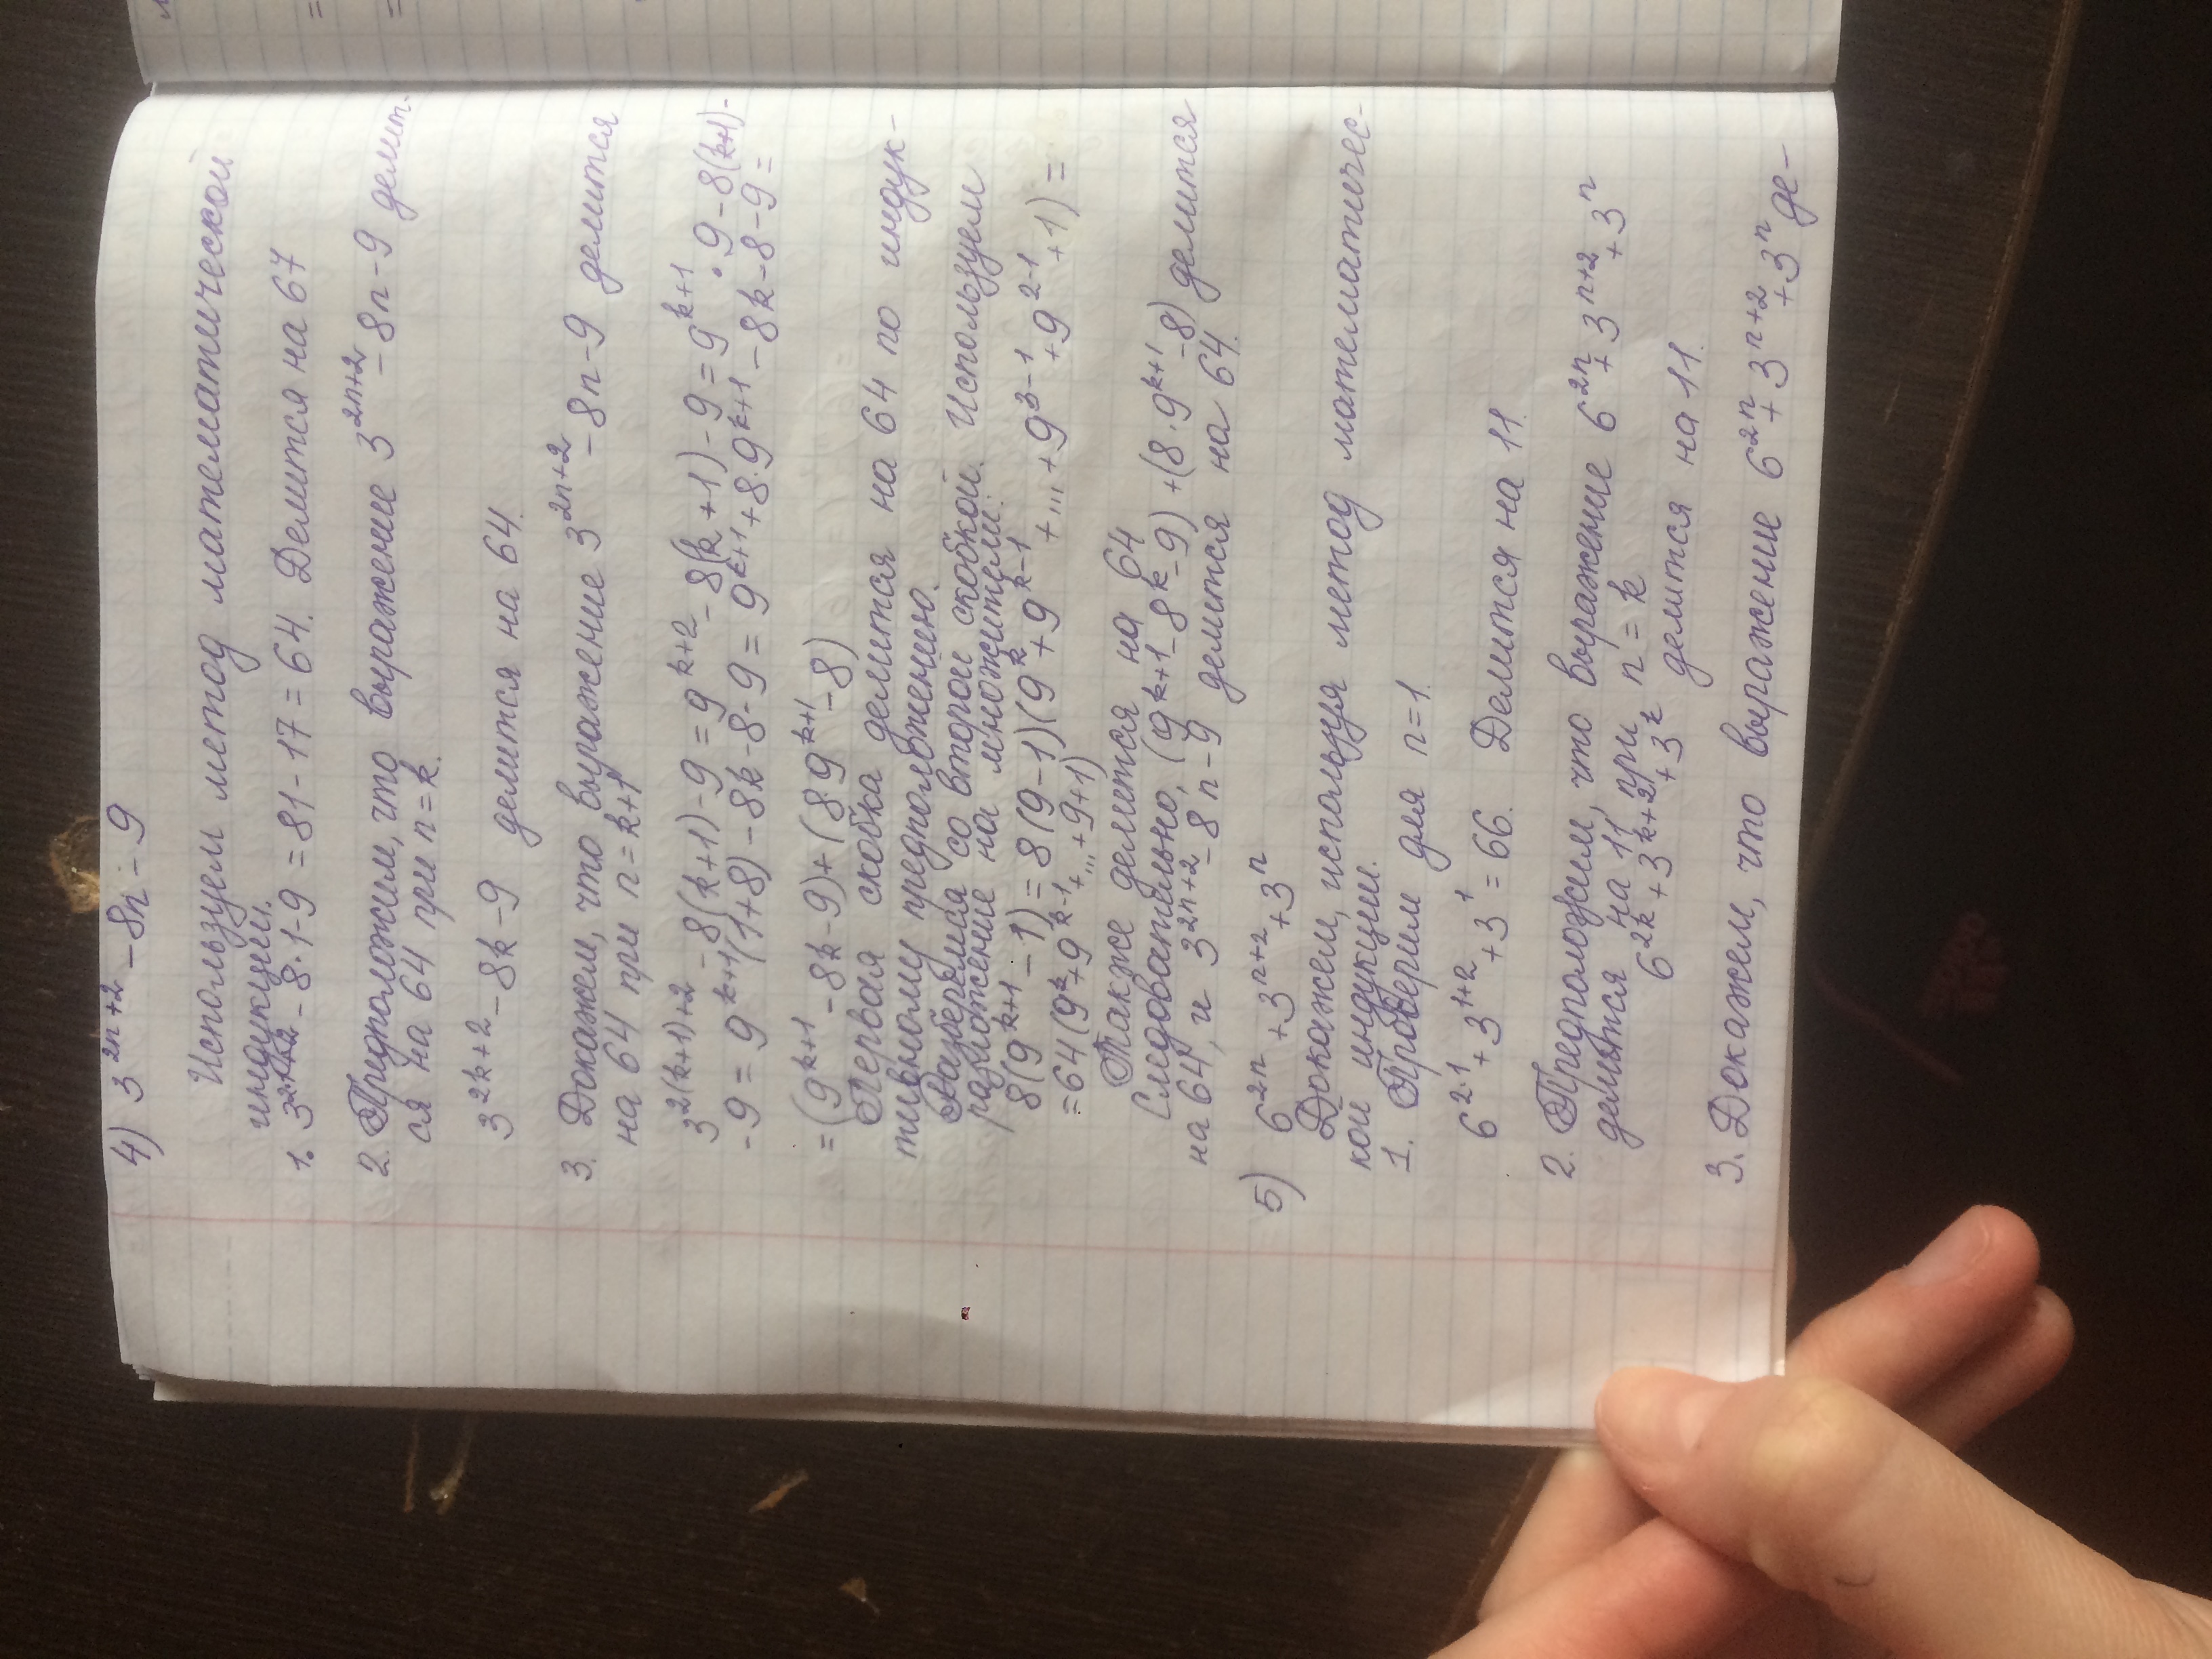 4) 3^{2n+2} - 8n - 9
Используем метод математической
индукции.
1. 3^{2+2} - 8·1-9 = 81-17 = 64. Делится на 67
2. Предположим, что выражение 3^{2n+2} - 8n-9 делит-
ся на 64 при n=k.
3^{2k+2} - 8k-9 делится на 64.
3. Докажем, что выражение 3^{2n+2} - 8n-9 делится
на 64 при n=k+1
3^{2(k+1)+2} - 8(k+1)-9 = 9^{k+2} - 8(k+1)-9 = 9^{k+1}·9-8(k+1)-
-9 = 9^{k+1}(1+8)-8k-8-9 = 9^{k+1}+8·9^{k+1}-8k-8-9 =
=(9^{k+1}-8k-9)+(8·9^{k+1}-8)
Первая скобка делится на 64 по индук-
тивному предположению.
Разберемся со второй скобкой. Используем
разложение на множители:
8(9^{k+1}-1)=8(9-1)(9^k+9^{k-1}+...+9^{3-1}+9^{2-1}+1)=
=64(9^k+9^{k-1}+...+9+1)
Также делится на 64
Следовательно, (9^{k+1}-8k-9)+(8·9^{k+1}-8) делится
на 64, и 3^{2n+2}-8n-9 делится на 64.
5) 6^{2n}+3^{n+2}+3^n
Докажем, используя метод математичес-
кой индукции.
1. Проверим для n=1.
6^{2·1}+3^{1+2}+3^1=66. Делится на 11.
2. Предположим, что выражение 6^{2n}+3^{n+2}+3^n
делится на 11, при n=k
6^{2k}+3^{k+2}+3^k делится на 11.
3. Докажем, что выражение 6^{2n}+3^{n+2}+3^n де-